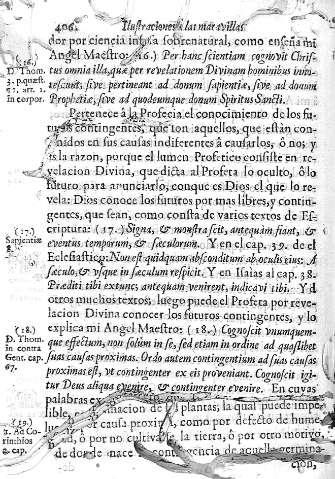 406. Ilustraciones à las maravillas
dor por ciencia infusa sobrenatural, como enseña mi
Angel Maestro: (16.) Per hanc scientiam cognovit Chris-
tus omnia illa, quæ per revelationem Divinam hominibus inno-
tescunt, sive pertineant ad donum sapientiæ, sive ad donum
Prophetiæ, sive ad quodcumque donum Spiritus Sancti.
Pertenece à la Profecia el conocimiento de los fu-
turos contingentes, que son aquellos, que estàn con-
tenidos en sus causas indiferentes à causarlos, ò no; y
es la razon, porque el lumen Profetico consiste en re-
velacion Divina, que dicta al Profeta lo oculto, ò lo
futuro para anunciarlo, conque es Dios el que lo re-
vela: Dios conoce los futuros por mas libres, y contin-
gentes, que sean, como consta de varios textos de Es-
criptura: (17.) Signa, & monstra scit, antequàm fiant, &
eventus temporum, & sæculorum. Y en el cap. 39. de el
Eclesiastico: Non est quidquam absconditum ab oculis eius: A
sæculo, & usque in sæculum respicit. Y en Isaias al cap. 38.
Prædixi tibi ex tunc, antequam venirent, indicavi tibi. Y de
otros muchos textos; luego puede el Profeta por reve-
lacion Divina conocer los futuros contingentes, y lo
explica mi Angel Maestro: (18.) Cognoscit unumquem-
que effectum, non solùm in se, sed etiam in ordine ad quaslibet
suas causas proximas. Ordo autem contingentium ad suas causas
proximas est, ut contingenter ex eis proveniant. Cognoscit igi-
tur Deus aliqua evenire, & contingenter evenire. En cuyas
palabras
plantas, la qual puede impe-
causa proxima, como por defecto de hume-
ò por no cultivar la tierra, ò por otro motivo,
de donde nace la contingencia de aquella germina-
cion,
(16.)
D. Thom.
3. p. quæst.
art. 1.
in corpor.
(17.)
Sapientiæ
8.
(18.)
D. Thom.
in contra
Gent. cap.
67.
(19.)
Ad Co-
rinthios
cap.